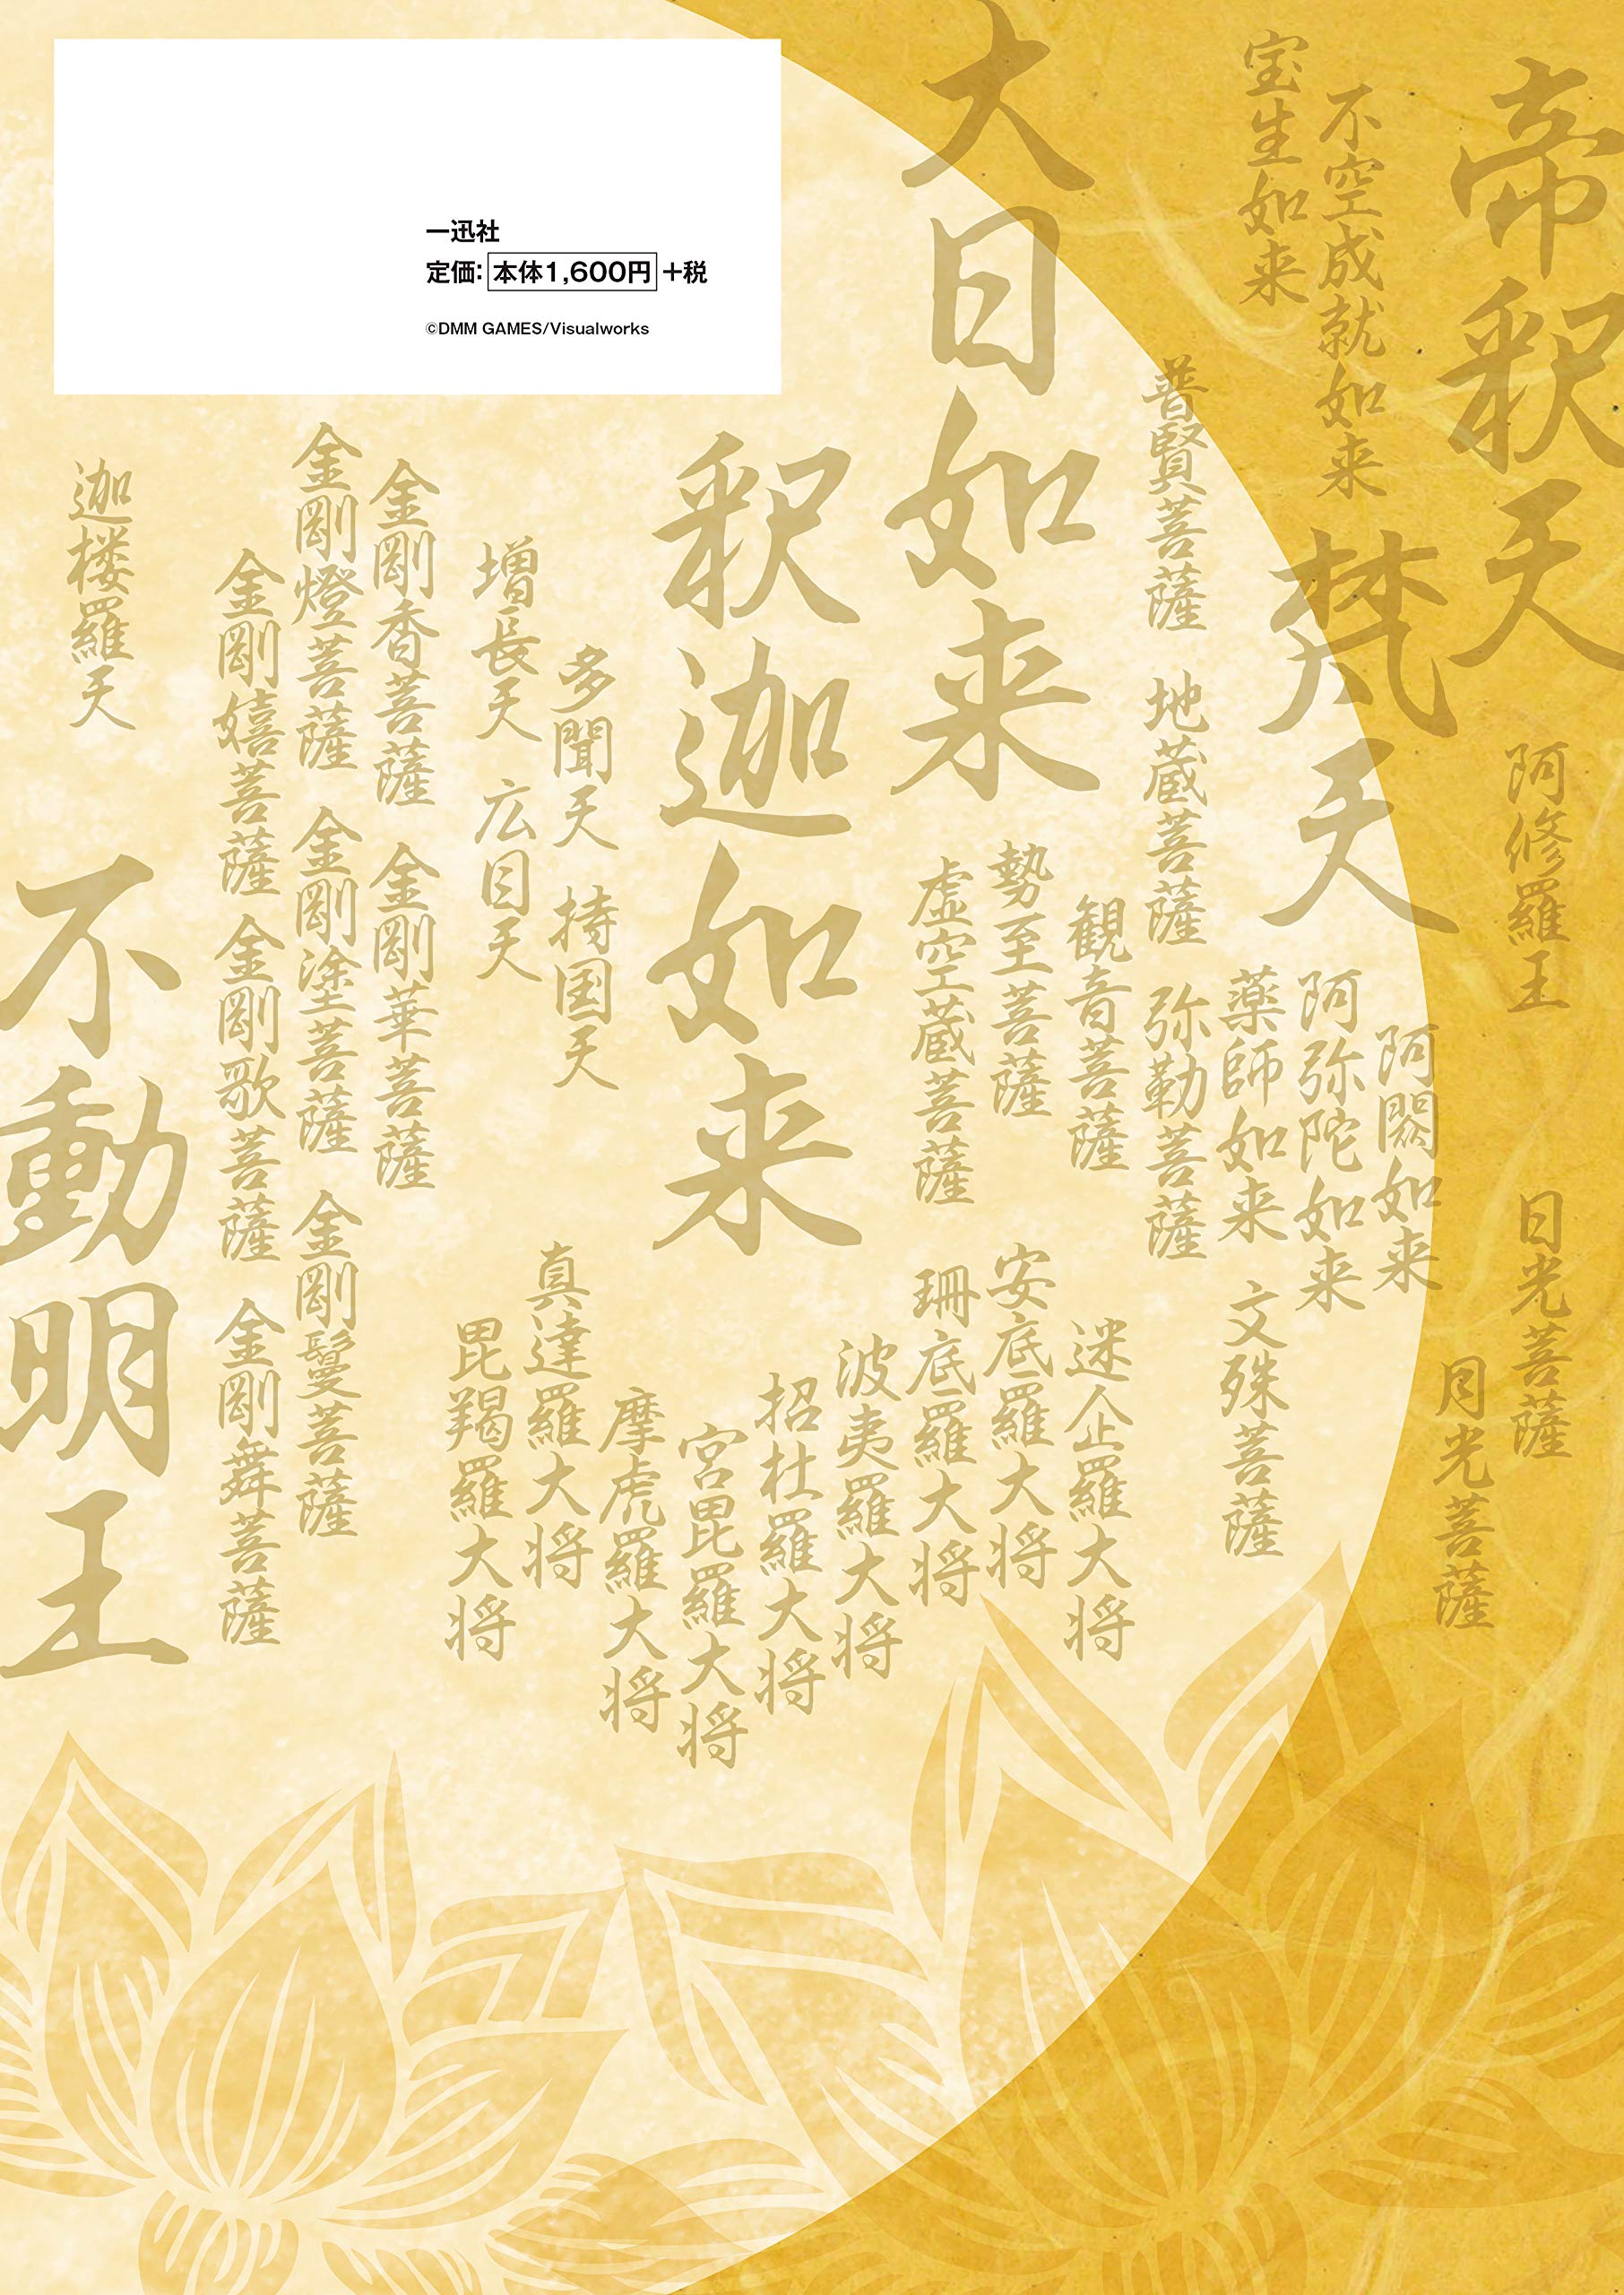 一迅社
定価:本体1,600円+税
©DMM GAMES/Visualworks
帝釈天
阿修羅王
日光菩薩
月光菩薩
不空成就如来
宝生如来
梵天
阿閦如来
阿弥陀如来
薬師如来
文殊菩薩
普賢菩薩
地蔵菩薩
弥勒菩薩
観音菩薩
勢至菩薩
虚空蔵菩薩
大日如来
迷企羅大将
安底羅大将
珊底羅大将
波夷羅大将
招杜羅大将
宮毘羅大将
摩虎羅大将
真達羅大将
毘羯羅大将
釈迦如来
多聞天
持国天
増長天
広目天
金剛香菩薩
金剛華菩薩
金剛燈菩薩
金剛塗菩薩
金剛鬘菩薩
金剛嬉菩薩
金剛歌菩薩
金剛舞菩薩
迦楼羅天
不動明王